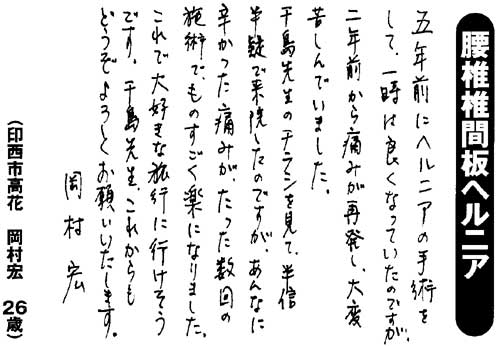 腰椎椎間板ヘルニア
五年前にヘルニアの手術を
して、一時は良くなっていたのですが、
二年前から痛みが再発し、大変
苦しんでいました。
千島先生のチラシを見て、半信
半疑で来院したのですが、あんなに
辛かった痛みが、たった数回の
施術で、ものすごく楽になりました。
これで大好きな旅行に行けそう
です。千島先生これからも
どうぞよろしくお願いいたします。
岡村 宏
(印西市高花 岡村宏 26歳)